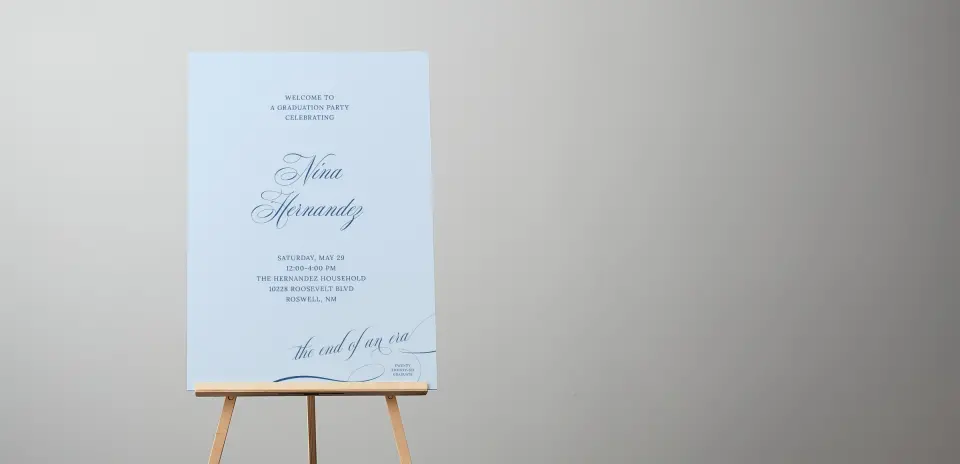 WELCOME TO
A GRADUATION PARTY
CELEBRATING
Nina
Hernandez
SATURDAY, MAY 29
12:00-4:00 PM
THE HERNANDEZ HOUSEHOLD
10228 ROOSEVELT BLVD
ROSWELL, NM
the end of an era